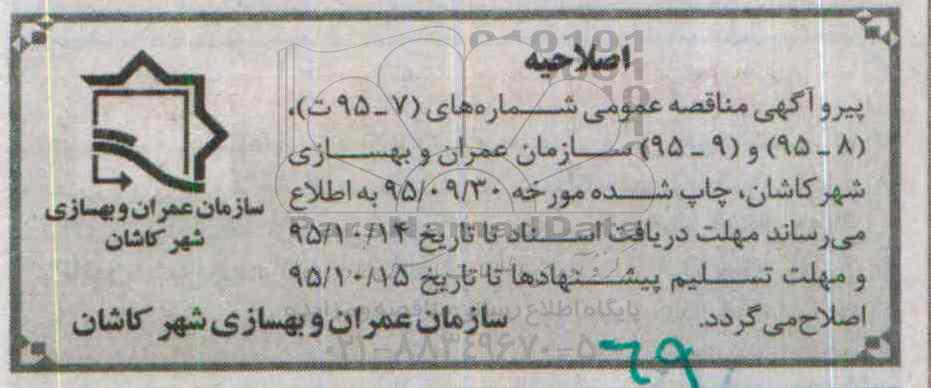 اصلاحیه
پیرو آگهی مناقصه عمومی شماره‌های (۷ ـ ۹۵ ت)،
(۸ ـ ۹۵) و (۹ ـ ۹۵) سازمان عمران و بهسازی
شهر کاشان، چاپ شده مورخه ۹۵/۰۹/۳۰ به اطلاع
می‌رساند مهلت دریافت اسناد تا تاریخ ۹۵/۱۰/۱۴
و مهلت تسلیم پیشنهادها تا تاریخ ۹۵/۱۰/۱۵
اصلاح می گردد.
سازمان عمران و بهسازی شهر کاشان
سازمان عمران و بهسازی
شهر کاشان
ParsNamadData
پایگاه اطلاع رسانی
۰۲۱-۸۸۳۴۹۶۷۰-۵